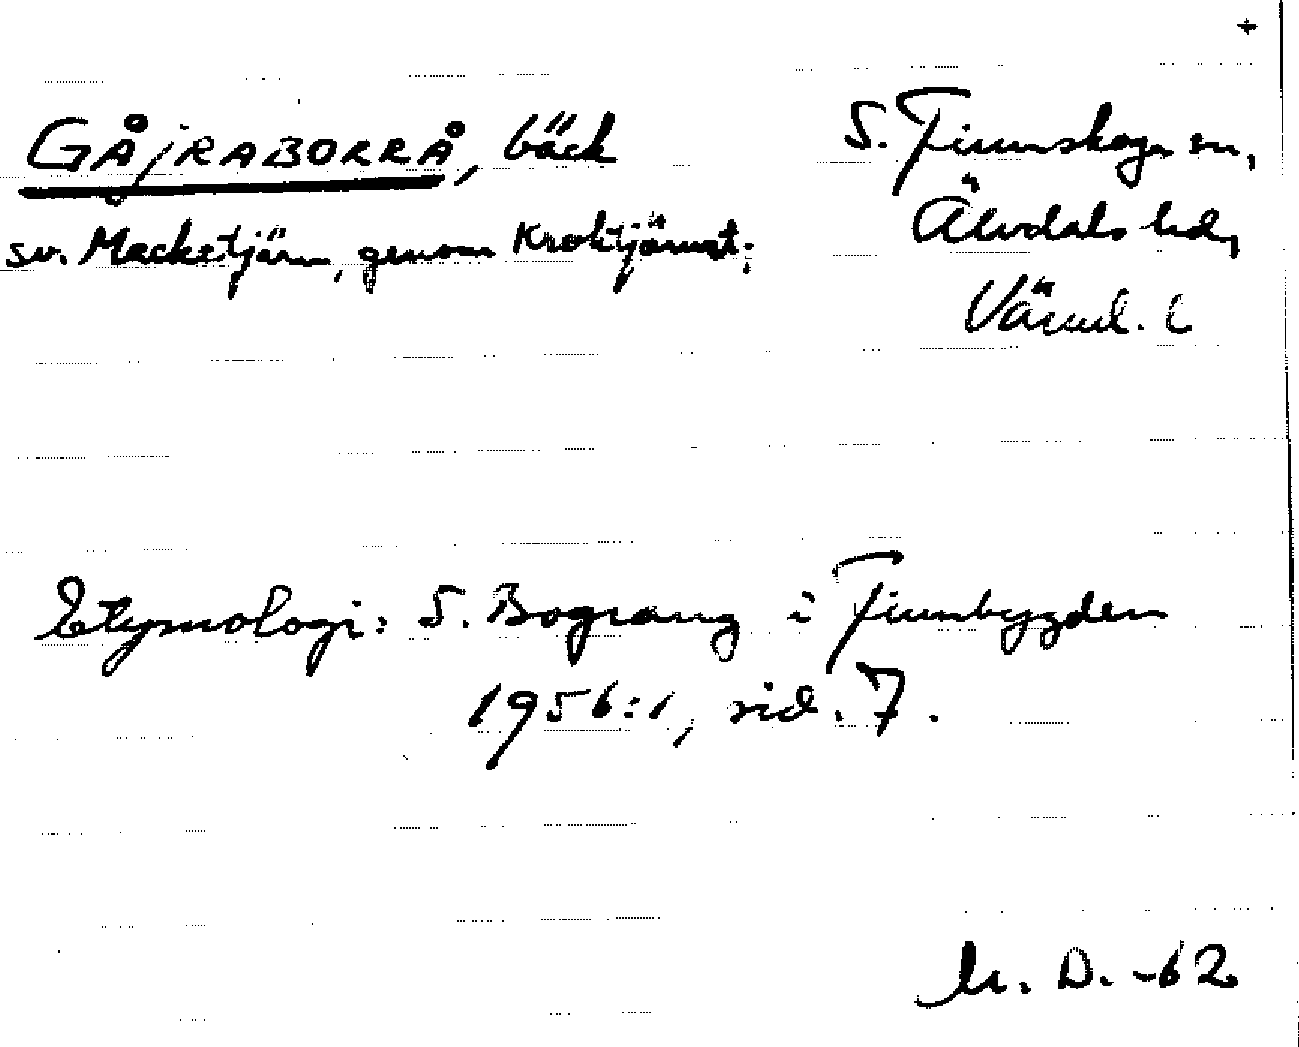 +
GÅJRABORRÅ, bäck
sv. Macketjärn, genom Kroktjärnet;
S. Finnskoga sn,
Älvdals hd,
Värml. l
Etymologi: S. Bograng i Finnbygden
1956:1, sid. 7.
D. -62